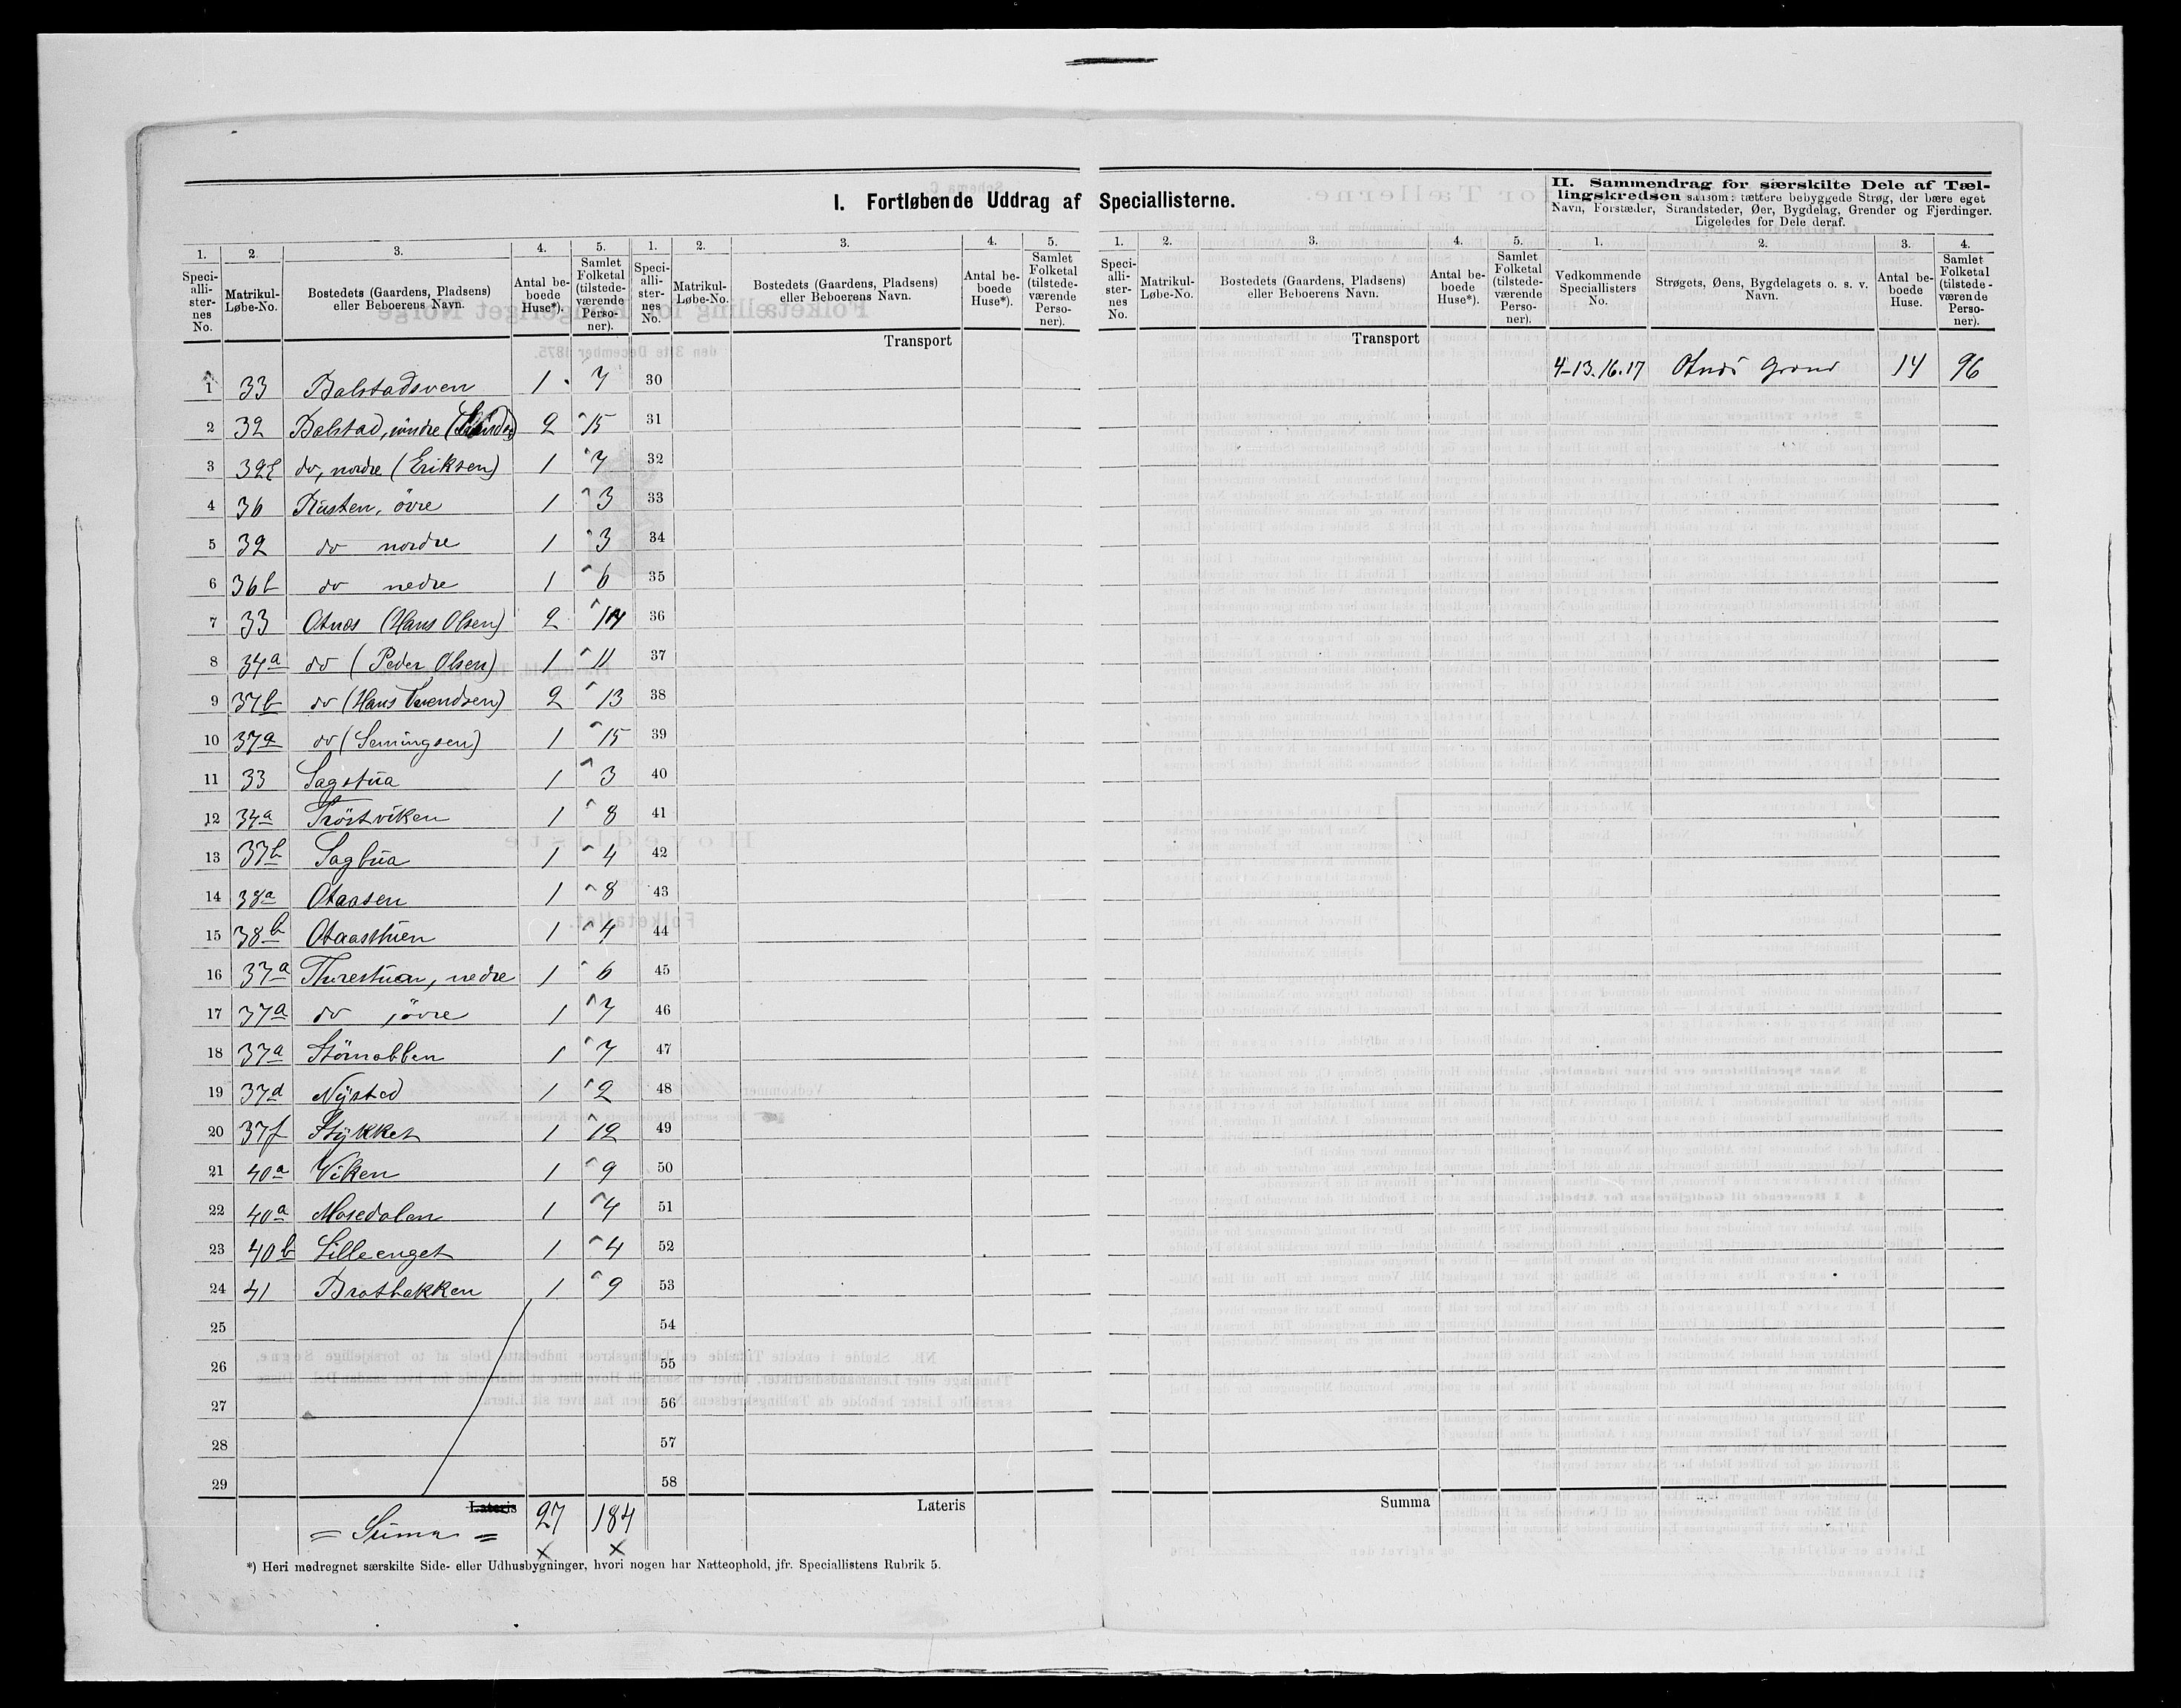 I. Fortløbende Uddrag af Speciallisterne.
II. Sammendrag for særskilte Dele af Tæl-
lingskredsen saasom: tættere bebyggede Strøg, der bære eget
Navn, Forstæder, Strandsteder, Øer, Bygdelag, Grender og Fjerdinger.
Ligeledes for Dele deraf.
1. 2. 3. 4. 5. 1. 2. 3. 4. 5. 1. 2. 3. 4. 5. 1. 2. 3. 4.
Speci-alli-ster-nes No. Matrikul-Løbe-No. Bostedets (Gaardens, Pladsens) eller Beboerens Navn. Antal be-boede Huse*). Samlet Folketal (tilstede-værende Perso-ner).
Speci-alli-ster-nes No. Matrikul-Løbe-No. Bostedets (Gaardens, Pladsens) eller Beboerens Navn. Antal be-boede Huse*). Samlet Folketal (tilstede-værende Perso-ner).
Speci-alli-ster-nes No. Matrikul-Løbe-No. Bostedets (Gaardens, Pladsens) eller Beboerens Navn. Antal be-boede Huse*). Samlet Folketal (tilstede-værende Perso-ner).
Vedkommende Speciallisters No. Strøgets, Øens, Bygdelagets o. s. v. Navn. Antal be-boede Huse. Samlet Folketal (tilstede-værende Perso-ner).
Transport Transport
4-13.16.17 Otnes Grend 14 96
1 33 Balstadsveen 1 7 30
2 32 Balstad, søndre 2 15 31
3 32 do, nordre (Eriksen) 1 7 32
4 36 Kusten, øvre 1 3 33
5 32 do nordre 1 3 34
6 36b do nedre 1 6 35
7 33 Otnes (Hans Olsen) 2 14 36
8 34a do (Peder Olsen) 1 11 37
9 37b do (Hans Svendsen) 2 13 38
10 37a do (Semingsen) 1 15 39
11 33 Sagstua 1 3 40
12 34a Trøstviken 1 8 41
13 37b Sagbua 1 4 42
14 38a Otaasen 1 8 43
15 38b Otaasthuen 1 4 44
16 37a Thurestuen, nedre 1 6 45
17 37a do, øvre 1 7 46
18 37a Størnabben 1 7 47
19 37d Nysted 1 2 48
20 37f Stykket 1 12 49
21 40a Viken 1 9 50
22 40a Mosedalen 1 4 51
23 40b Lilleenget 1 4 52
24 41 Bratbakken 1 9 53
25 54
26 55
27 56
28 57
29 58
Lateris Lateris Summa
= Suma = 27 184
*) Heri medregnet særskilte Side- eller Udhusbygninger, hvori nogen har Natteophold, jfr. Speciallistens Rubrik 5.